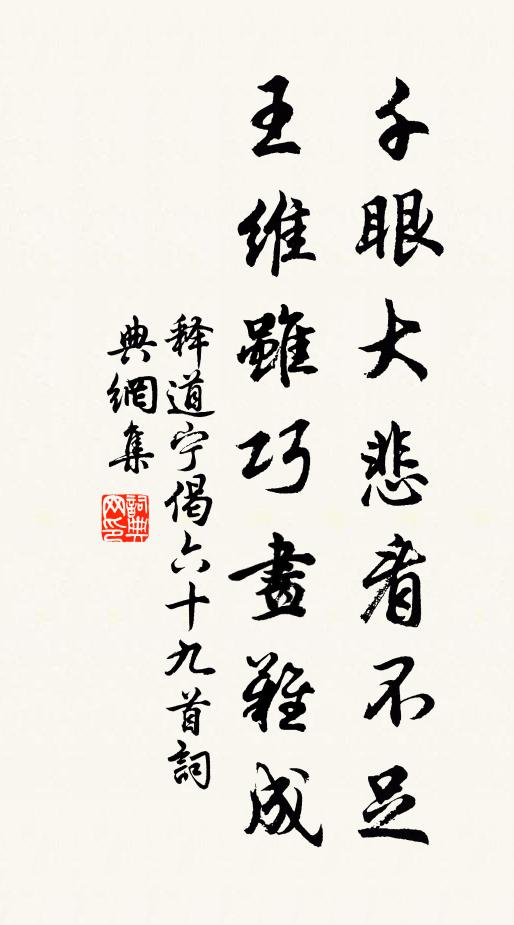 千眼大悲看不足
王維雖巧畫難成
释道宁偈六十九首詞
典網集
詞典
网印